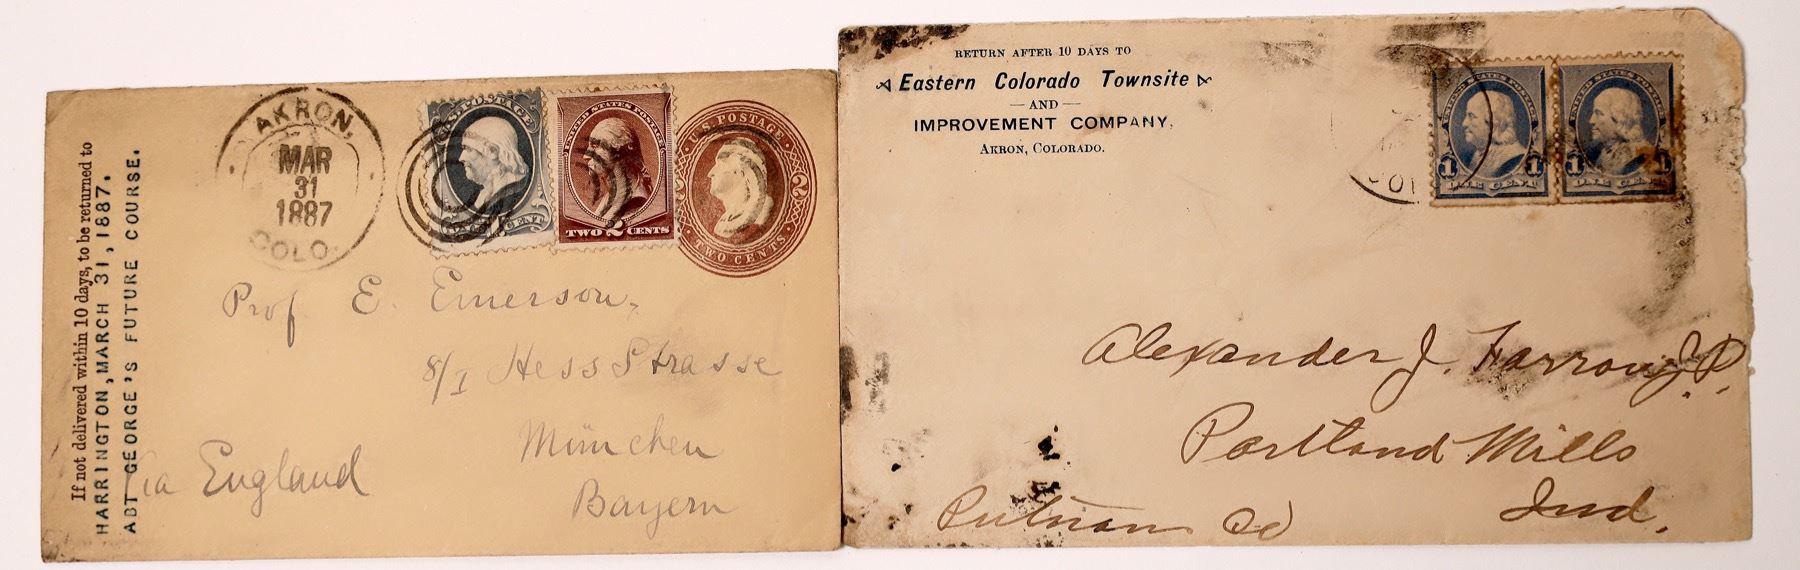 If not delivered within 10 days, to be returned to
HARRINGTON, MARCH 31, 1887.
ABT GEORGE'S FUTURE COURSE.
AKRON,
MAR
31
1887
COLO.
POSTAGE
CENT
UNITED STATES POSTAGE
TWO 2 CENTS
U.S. POSTAGE
2 2
TWO CENTS
Prof E. Emerson,
8/I Hess Strasse
München
Bayern
Via England
RETURN AFTER 10 DAYS TO
Eastern Colorado Townsite
— AND —
IMPROVEMENT COMPANY,
AKRON, COLORADO.
UNITED STATES POSTAGE
1 1
ONE CENT
UNITED STATES POSTAGE
1 1
ONE CENT
Alexander J. Farrow J.P.
Portland Mills
Putnam Co
Ind.